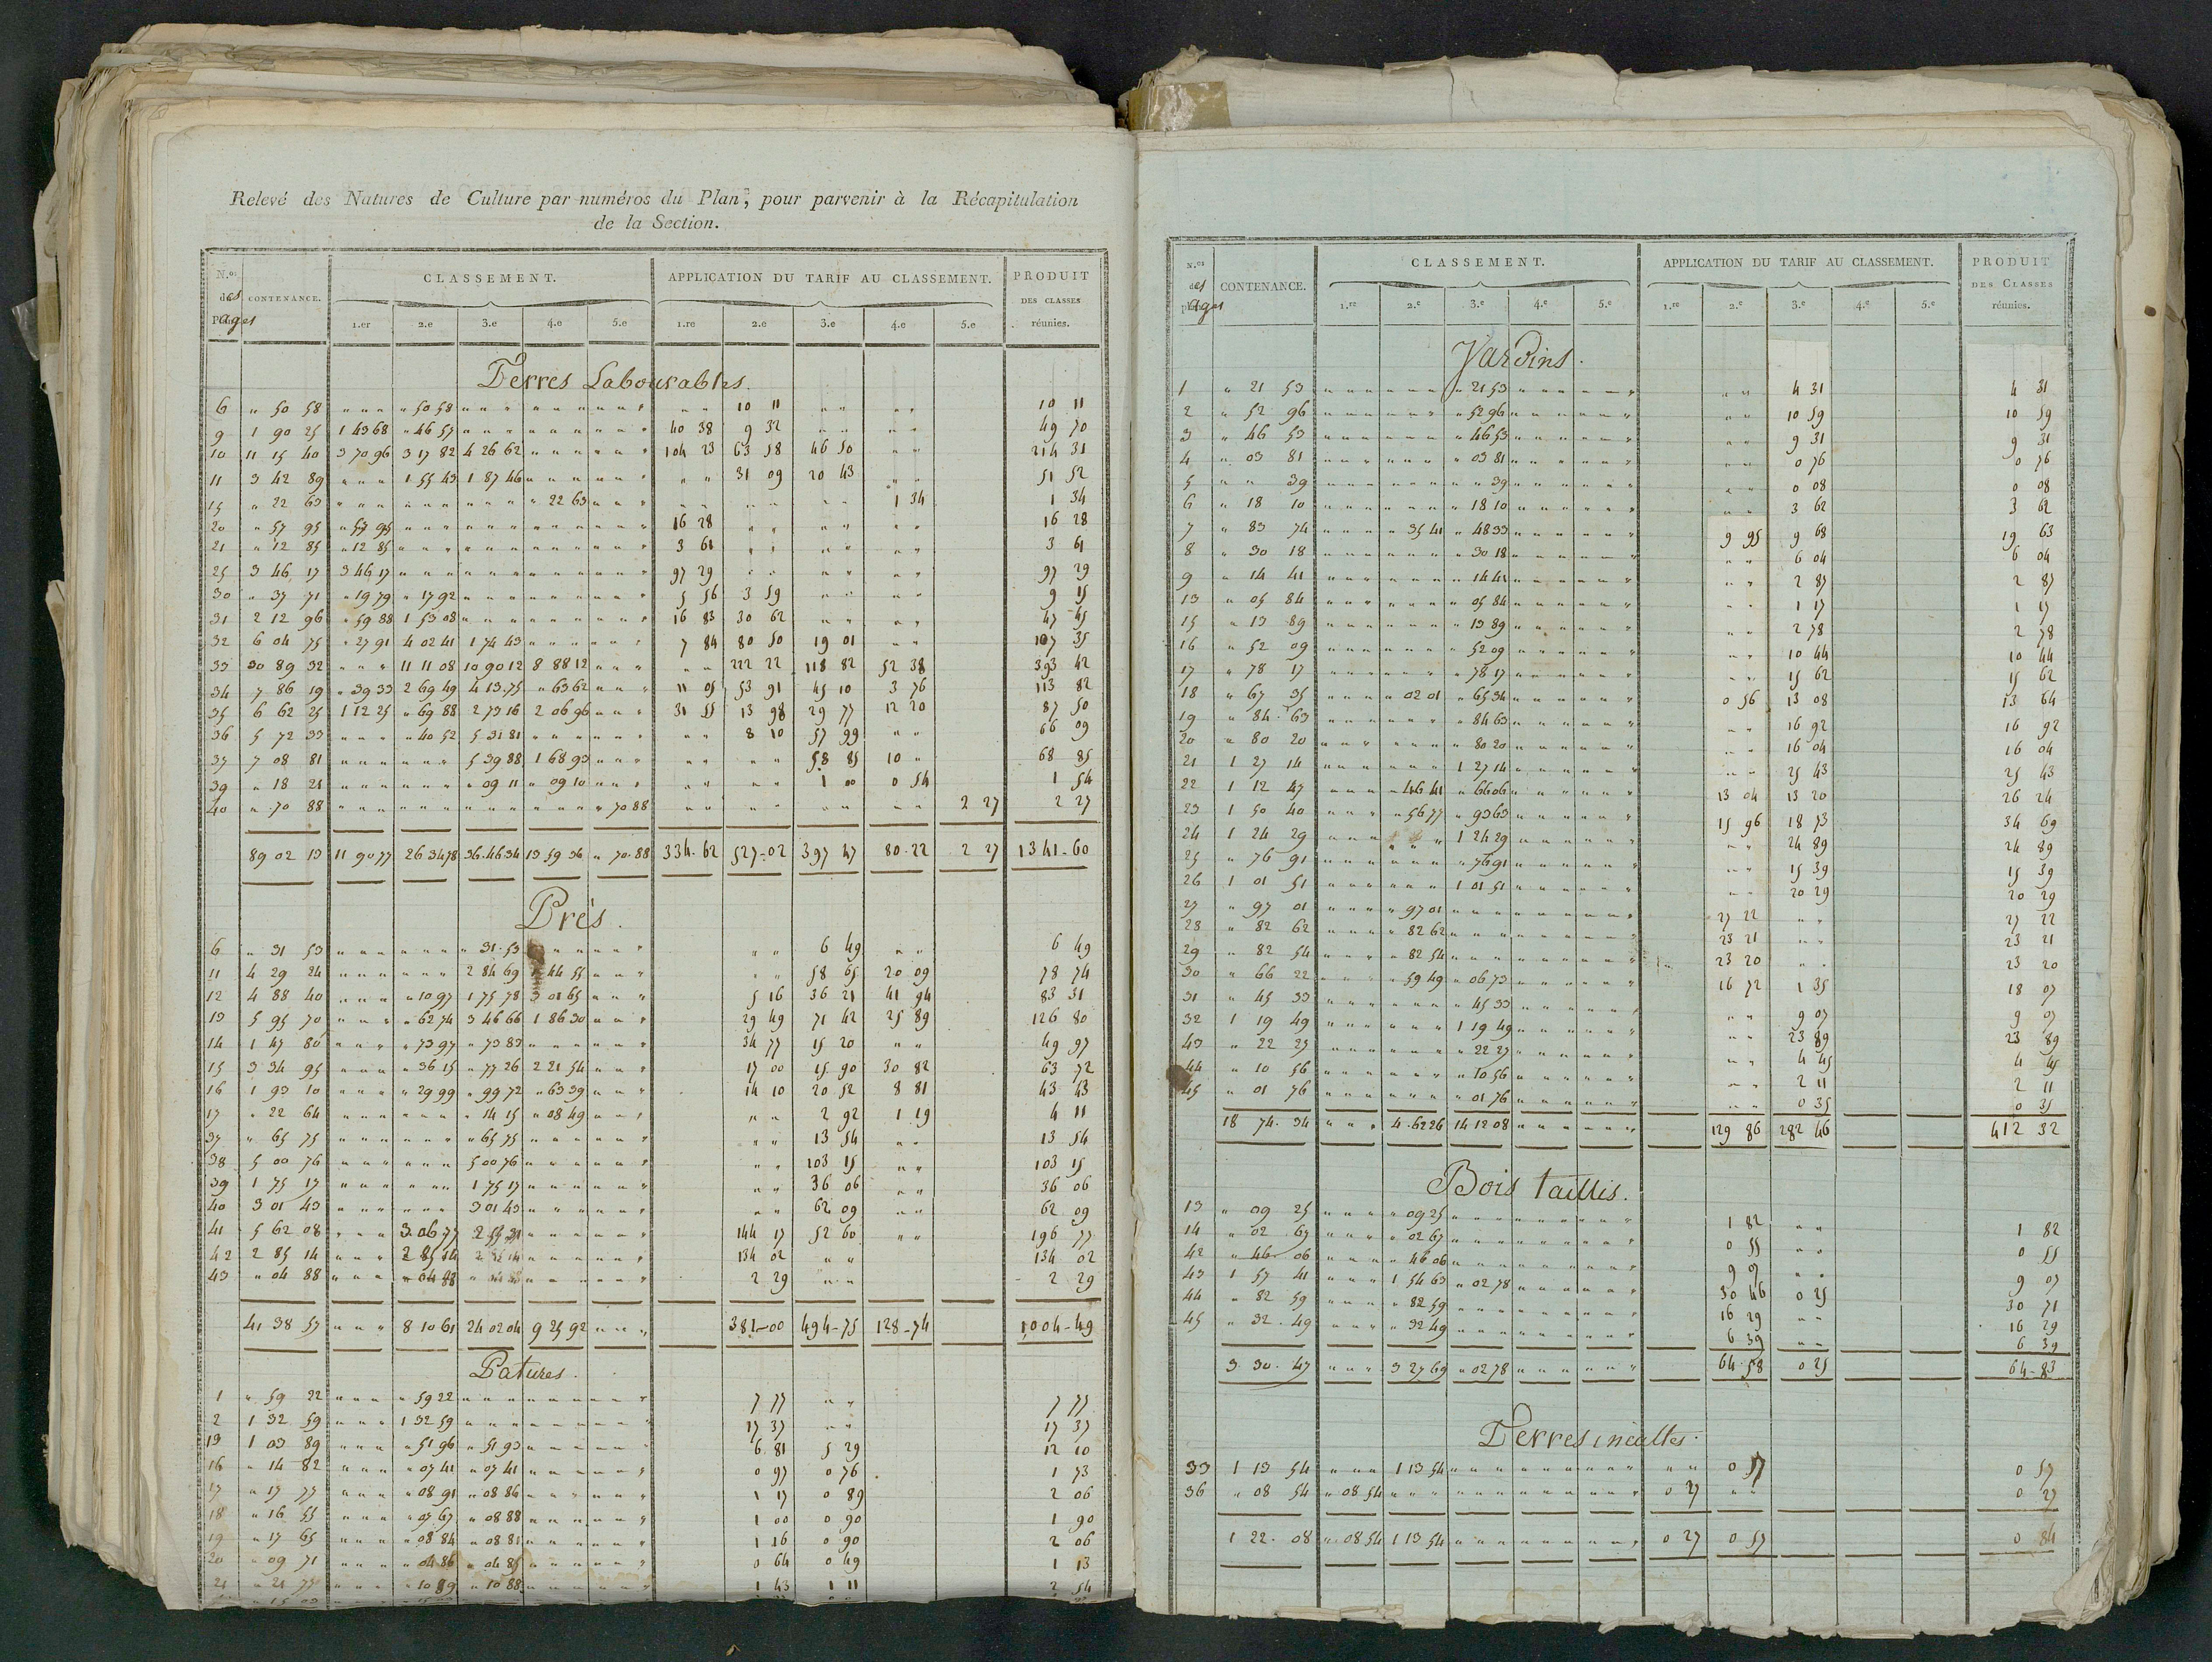 Relevé des Natures de Culture par numéros du Plan, pour parvenir à la Récapitulation
de la Section.
N.os des Pages CONTENANCE. CLASSEMENT. APPLICATION DU TARIF AU CLASSEMENT. PRODUIT DES CLASSES réunies.
1.er 2.e 3.e 4.e 5.e 1.re 2.e 3.e 4.e 5.e
Terres Labourables.
6 " 50 58 " 50 58 10 11 10 11
9 1 90 25 1 43 68 " 46 57 40 38 9 32 49 70
10 11 15 40 3 70 96 3 17 82 4 26 62 104 23 63 58 46 50 214 31
11 3 42 89 1 55 43 1 87 46 31 09 20 43 51 52
15 " 22 63 " 22 63 1 34 1 34
20 " 57 95 " 57 95 16 28 16 28
21 " 12 85 " 12 85 3 61 3 61
25 3 46 17 3 46 17 97 29 97 29
30 " 37 71 " 19 79 " 17 92 5 56 3 59 9 15
31 2 12 96 " 59 88 1 53 08 16 83 30 62 47 45
32 6 04 75 " 27 91 4 02 41 1 74 43 7 84 80 50 19 01 107 35
33 30 89 32 11 11 08 10 90 12 8 88 12 222 22 118 82 52 38 393 42
34 7 86 19 " 39 33 2 69 49 4 13 75 " 63 62 11 05 53 91 45 10 3 76 113 82
35 6 62 25 1 12 25 " 69 88 2 73 16 2 06 96 31 55 13 98 29 77 12 20 87 50
36 5 72 33 " 40 52 5 31 81 8 10 57 99 66 09
37 7 08 81 5 39 88 1 68 93 58 85 10 " 68 85
39 " 18 21 " 09 11 " 09 10 1 00 0 54 1 54
40 " 70 88 " 70 88 2 27 2 27
89 02 13 11 90 77 26 34 78 36 46 34 13 59 36 " 70 88 334.62 527-02 397 47 80-22 2 27 1341-60
Prés.
6 " 31 53 " 31 53 6 49 6 49
11 4 29 24 2 84 69 1 44 55 58 65 20 09 78 74
12 4 88 40 " 10 97 1 75 78 3 01 65 5 16 36 21 41 94 83 31
13 5 95 70 " 62 74 3 46 66 1 86 30 29 49 71 42 25 89 126 80
14 1 47 80 " 73 97 " 73 83 34 77 15 20 49 97
15 3 34 95 " 36 15 " 77 26 2 21 54 17 00 15 90 30 82 63 72
16 1 93 10 " 29 99 " 99 72 " 63 39 14 10 20 52 8 81 43 43
17 " 22 64 " 14 15 " 08 49 2 92 1 19 4 11
37 " 65 75 " 65 75 13 54 13 54
38 5 00 76 5 00 76 103 15 103 15
39 1 75 17 1 75 17 36 06 36 06
40 3 01 43 3 01 43 62 09 62 09
41 5 62 08 3 06 77 2 55 31 144 17 52 60 196 77
42 2 85 14 2 85 14 134 02 134 02
43 " 04 88 " 04 88 2 29 2 29
41 38 57 8 10 61 24 02 04 9 25 92 381-00 494-75 128-74 1004-49
Patures.
1 " 59 22 " 59 22 7 77 7 77
2 1 32 59 1 32 59 17 37 17 37
13 1 03 89 " 51 96 " 51 93 6 81 5 29 12 10
16 " 14 82 " 07 41 " 07 41 0 97 0 76 1 73
17 " 17 77 " 08 91 " 08 86 1 17 0 89 2 06
18 " 16 55 " 07 67 " 08 88 1 00 0 90 1 90
19 " 17 65 " 08 84 " 08 81 1 16 0 90 2 06
20 " 09 71 " 04 86 " 04 85 0 64 0 49 1 13
21 " 21 77 " 10 89 " 10 88 1 43 1 11 2 54
N.os des Pages CONTENANCE. CLASSEMENT. APPLICATION DU TARIF AU CLASSEMENT. PRODUIT DES CLASSES réunies.
1.re 2.e 3.e 4.e 5.e 1.re 2.e 3.e 4.e 5.e
Jardins.
1 " 21 53 " 21 53 4 31 4 31
2 " 52 96 " 52 96 10 59 10 59
3 " 46 53 " 46 53 9 31 9 31
4 " 03 81 " 03 81 0 76 0 76
5 " " 39 " " 39 0 08 0 08
6 " 18 10 " 18 10 3 62 3 62
7 " 83 74 " 35 41 " 48 33 9 95 9 68 19 63
8 " 30 18 " 30 18 6 04 6 04
9 " 14 41 " 14 41 2 87 2 87
13 " 05 84 " 05 84 1 17 1 17
15 " 13 89 " 13 89 2 78 2 78
16 " 52 09 " 52 09 10 44 10 44
17 " 78 17 " 78 17 15 62 15 62
18 " 67 35 " 02 01 " 65 34 0 56 13 08 13 64
19 " 84 63 " 84 63 16 92 16 92
20 " 80 20 " 80 20 16 04 16 04
21 1 27 14 1 27 14 25 43 25 43
22 1 12 47 " 46 41 " 66 06 13 04 13 20 26 24
23 1 50 40 " 56 77 " 93 63 15 96 18 73 34 69
24 1 24 29 1 24 29 24 89 24 89
25 " 76 91 " 76 91 15 39 15 39
26 1 01 51 1 01 51 20 29 20 29
27 " 97 01 " 97 01 27 22 27 22
28 " 82 62 " 82 62 23 21 23 21
29 " 82 54 " 82 54 23 20 23 20
30 " 66 22 " 59 49 " 06 73 16 72 1 35 18 07
31 " 45 33 " 45 33 9 07 9 07
32 1 19 49 1 19 49 23 89 23 89
43 " 22 27 " 22 27 4 45 4 45
44 " 10 56 " 10 56 2 11 2 11
45 " 01 76 " 01 76 0 35 0 35
18 74 34 4 62 26 14 12 08 129 86 282 46 412 32
Bois taillis.
13 " 09 25 " 09 25 1 82 1 82
14 " 02 67 " 02 67 0 55 0 55
42 " 46 06 " 46 06 9 07 9 07
43 1 57 41 1 54 63 " 02 78 30 46 0 25 30 71
44 " 82 59 " 82 59 16 29 16 29
45 " 32 49 " 32 49 6 39 6 39
3 30 47 3 27 69 " 02 78 64 58 0 25 64-83
Terres incultes.
33 1 13 54 1 13 54 0 57 0 57
36 " 08 54 " 08 54 0 27 0 27
1 22 08 " 08 54 1 13 54 0 27 0 57 0 84